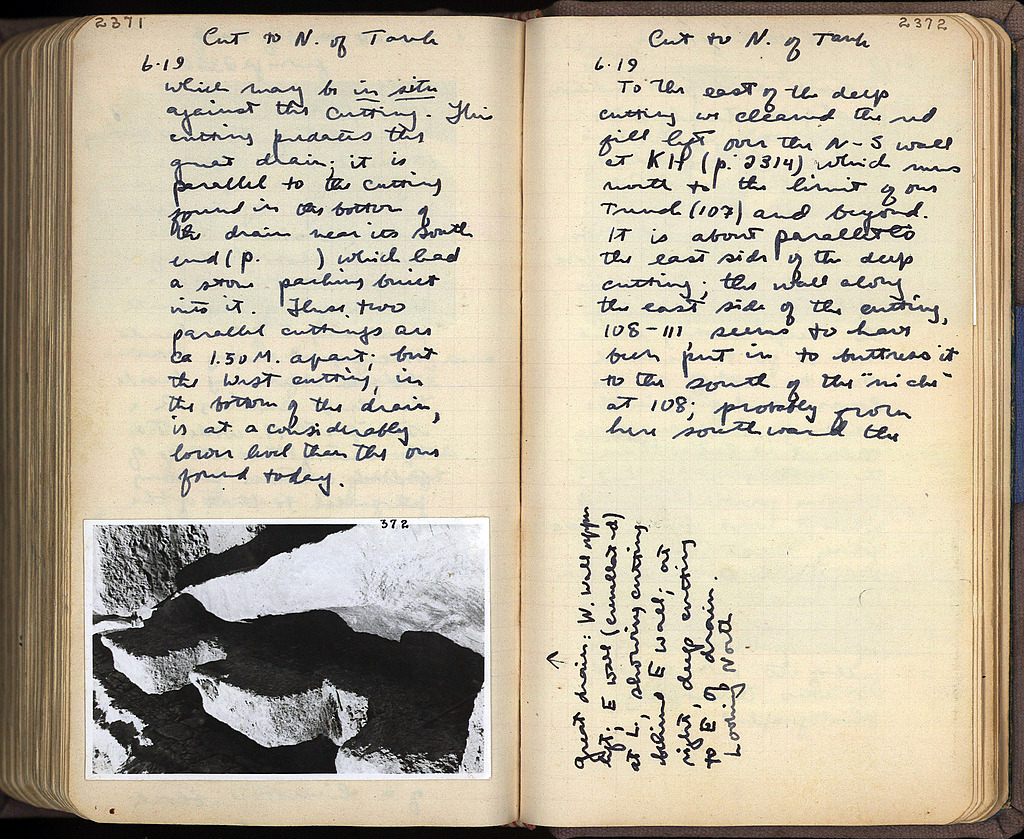 2371
Cut to N. of Tank
6.19
which may be in situ
against this cutting. This
cutting predates the
great drain; it is
parallel to the cutting
found in the bottom of
the drain near its South
end (p. ) which had
a stone packing built
into it. These two
parallel cuttings are
ca 1.50 M. apart; but
the West cutting, in
the bottom of the drain,
is at a considerably
lower level than the one
found today.
372
2372
Cut to N. of Tank
6.19
To the east of the deep
cutting we cleared the red
fill left over the N-S wall
at KH (p. 2314) which runs
north to the limit of our
Trench (107) and beyond.
It is about parallel to
the east side of the deep
cutting; the wall along
the east side of the cutting,
108-111, seems to have
been put in to buttress it
to the south of the "niche"
at 108; probably from
here southward the
↑
great drain: W. wall upper
left; E wall (crenellated)
at L. showing cutting
behind E wall; at
right, deep cutting
to E, of drain.
Looking North